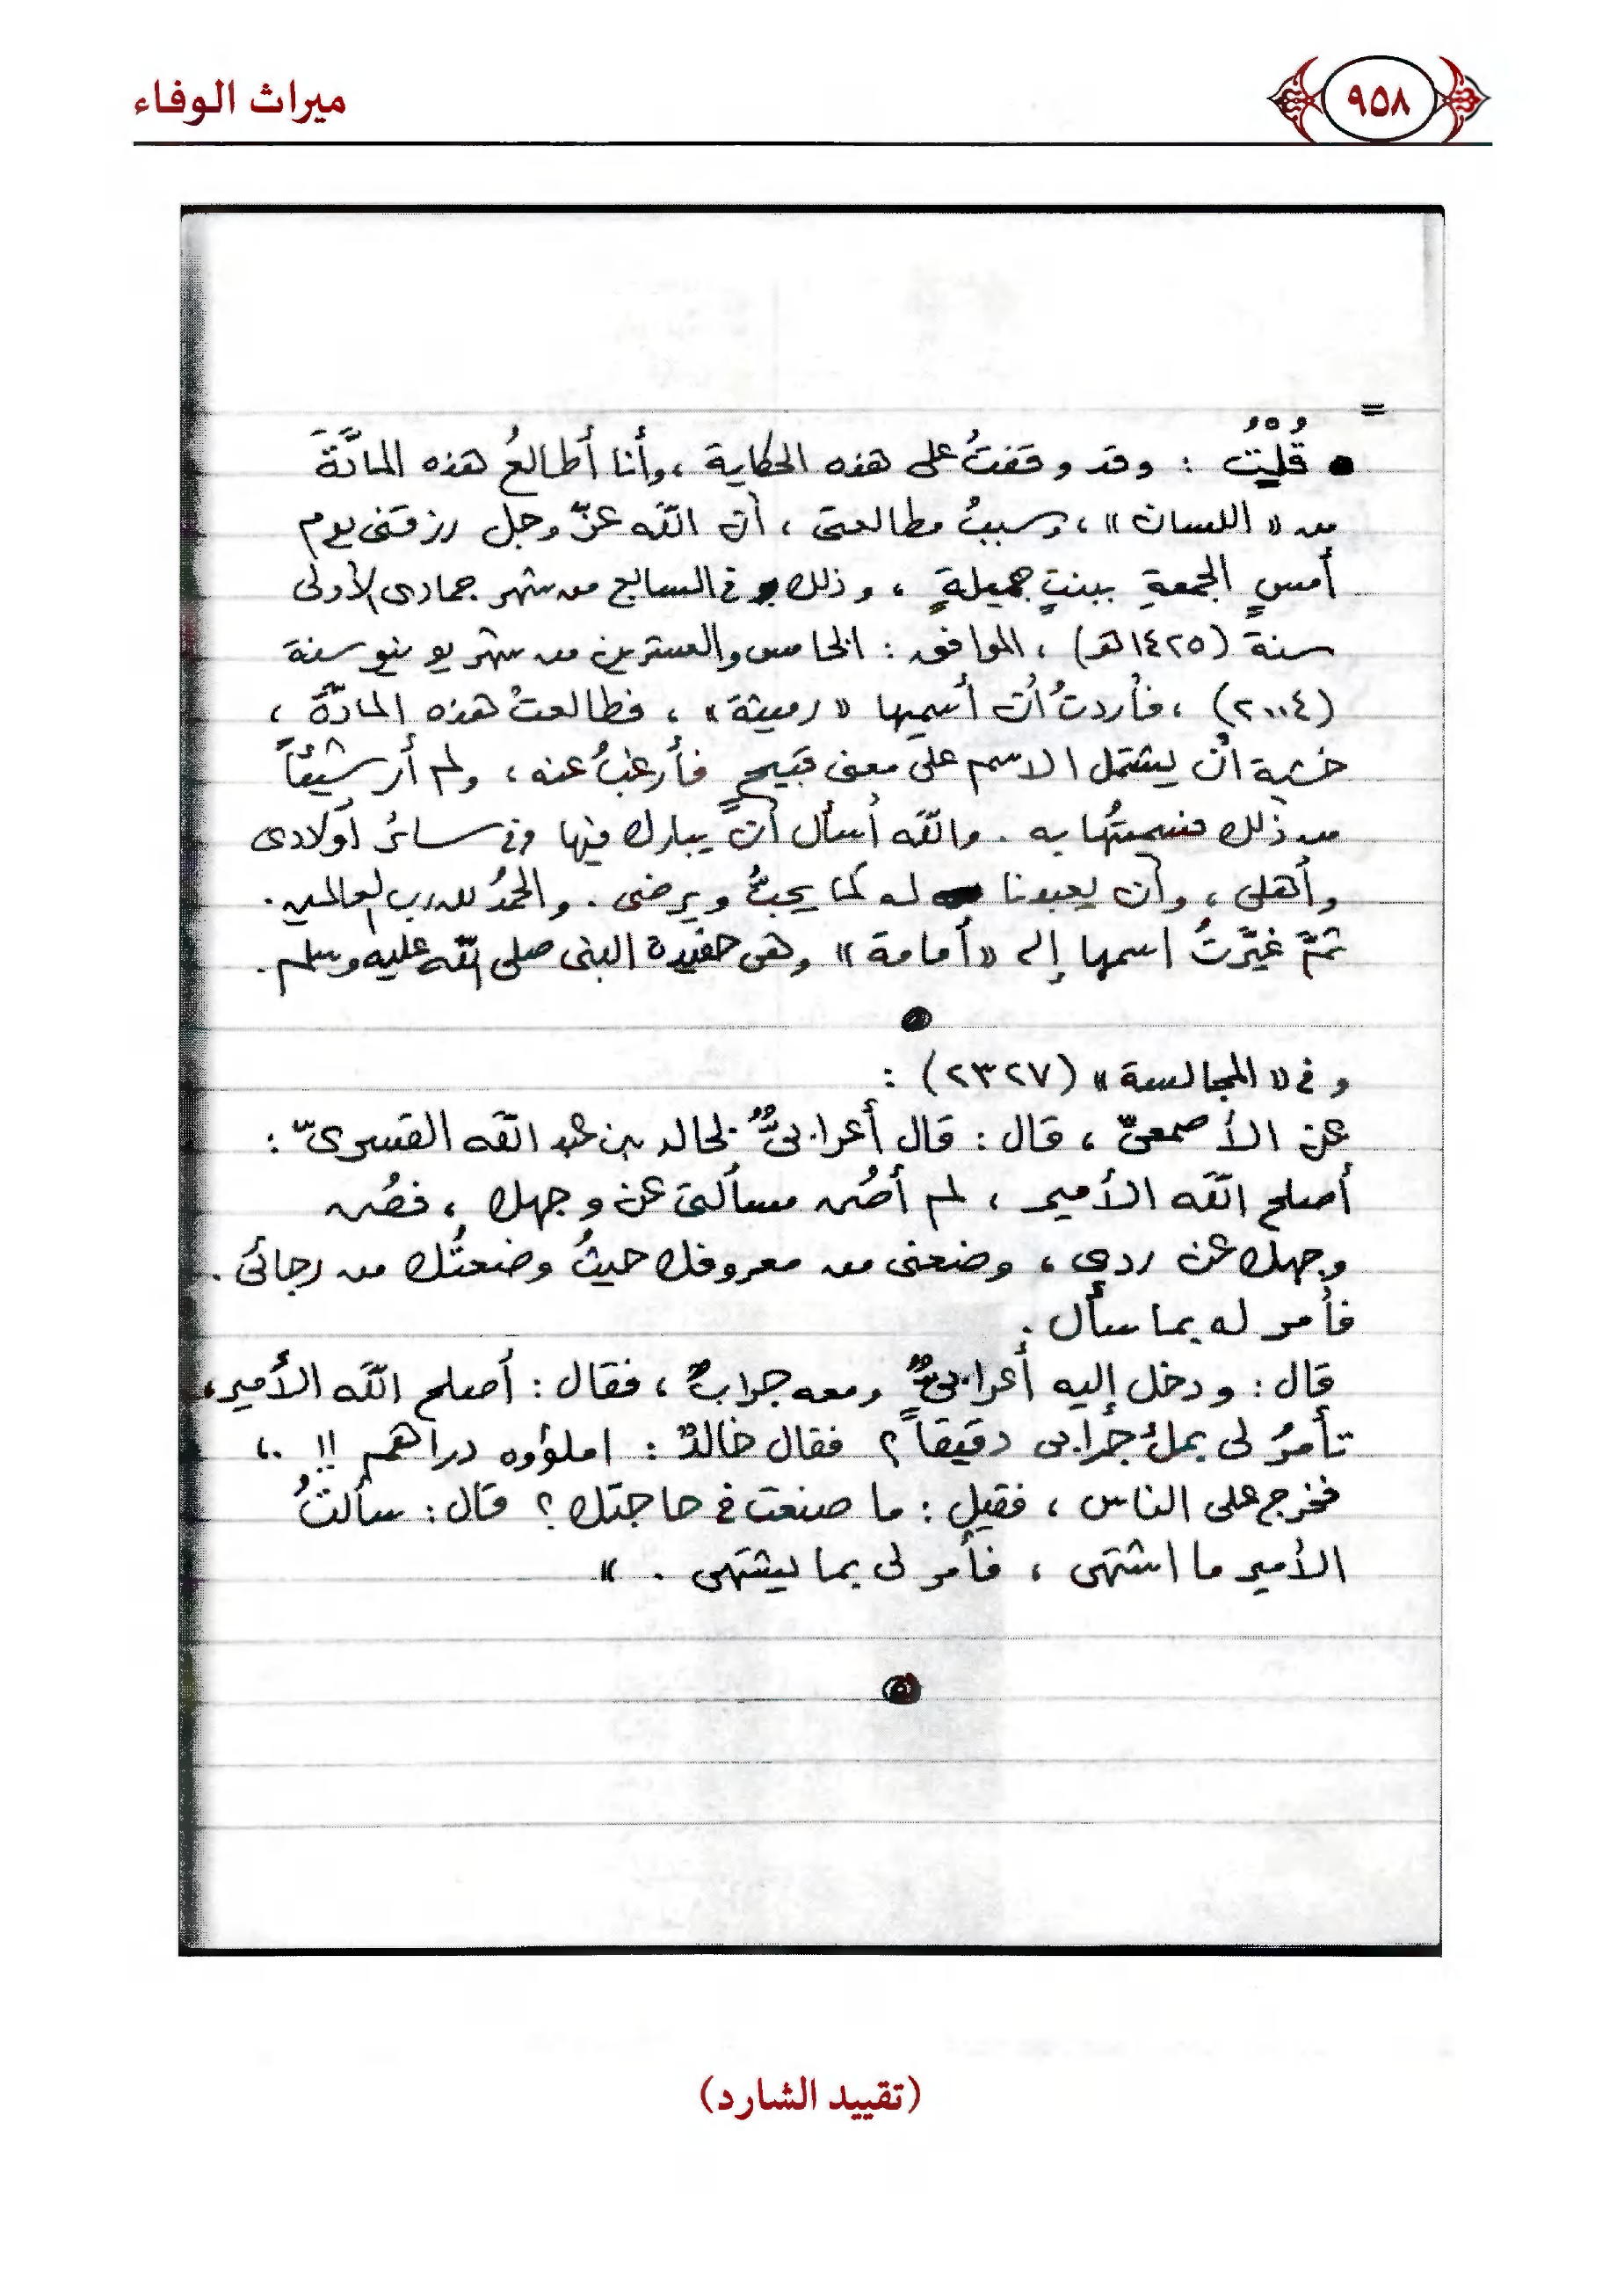 ميراث الوفاء
٩٥٨
=
• قُلْتُ : وقد وقفتُ على هذه الحكاية ، وأنا أطالعُ هذه المادَّةَ
من « اللسان » ، وسببُ مطالعتى ، أن اللّه عزّ وجل رزقنى يوم
أمسٍ الجمعةِ ببنتٍ جميلةٍ ، وذلك فى السابع من شهر جمادى الأولى
سنة (١٤٢٥هـ) ، الموافق : الخامس والعشرين من شهر يونيو سنة
(٢٠٠٤) ، فأردتُ أن أسميها « رميثة » ، فطالعتُ هذه المادّةَ ،
خشية أن يشتمل الاسم على معنى قبيحٍ فأرغبُ عنه ، ولم أر شيئاً
من ذلك فسميتُها به . واللّه أسأل أن يبارك فيها وفى سائرُ أولادى
وأهلى ، وأن يعبدنا له كما يحبُّ ويرضى . والحمدُ لله رب العالمين .
ثمَّ غيّرتُ اسمها إلى « أمامة » وهى حفيدة النبى صلى اللّه عليه وسلم .
و فى « المجالسة » (٢٣٢٧) :
عن الأصمعىّ ، قال : قال أعرابىٌّ لخالد بن عبد اللّه القسرىّ :
أصلح اللّه الأمير ، لم أصُن مسألتى عن وجهك ، فصُن
وجهك عن ردى ، وضعنى من معروفك حيثُ وضعتُك من رجائى .
فأمر له بما سأل .
قال : ودخل إليه أعرابىٌّ ومعه جرابٌ ، فقال : أصلح اللّه الأمير ،
تأمرُ لى بملءُ جرابى دقيقاً ؟ فقال خالدٌ : املؤوه دراهم !! .،
فخرج على الناس ، فقيل : ما صنعت فى حاجتك ؟ قال : سألتُ
الأمير ما اشتهى ، فأمر لى بما يشتهى . »
(تقييد الشارد)